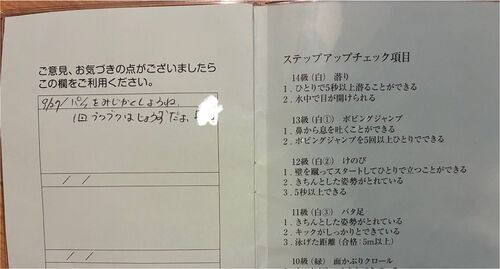 ご意見、お気づきの点がございましたら
この欄をご利用ください。
9/27 パパをみじかくしようね、
1回 ブクブクはしょうずだよ。
/ /
/ /
ステップアップチェック項目
14級（白）潜り
1．ひとりで5秒以上潜ることができる
2．水中で目が開けられる
13級（白①）ボビングジャンプ
1．鼻から息を吐くことができる
2．ボビングジャンプを5回以上ひとりでできる
12級（白②）けのび
1．壁を蹴ってスタートしてひとりで立つことができる
2．きちんとした姿勢がとれている
3．5秒以上できる
11級（白③）バタ足
1．きちんとした姿勢がとれている
2．キックがしっかりとできている
3．泳げた距離（合格：5m以上）
10級（緑）面かぶりクロール